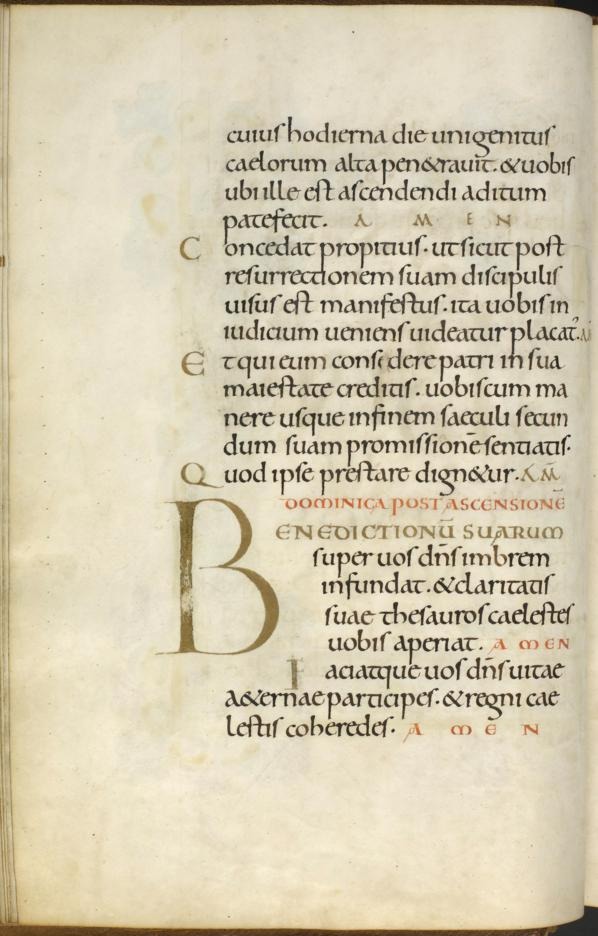 cuius hodierna die unigenitus
caelorum alta pen&rauit. &uobis
ubi ille est ascendendi aditum
patefecit. A M E N
Concedat propitius. ut sicut post
resurrectionem suam discipulis
uisus est manifestus. ita uobis in
iudicium ueniens uideatur placat᾿.
Et qui eum consedere patri in sua
maiestate creditis. uobiscum ma
nere usque in finem saeculi secun
dum suam promissionē sentiatis.
Quod ipse prestare dign&ur. AM̄
DOMINICA POST ASCENSIONĒ
BENEDICTIONŪ SUARUM
super uos dn̄s imbrem
infundat. &claritatis
suae thesauros caelestes
uobis aperiat. A M E N
Faciatque uos dn̄s uitae
a&ernae participes. &regni cae
lestis coheredes. A M E N